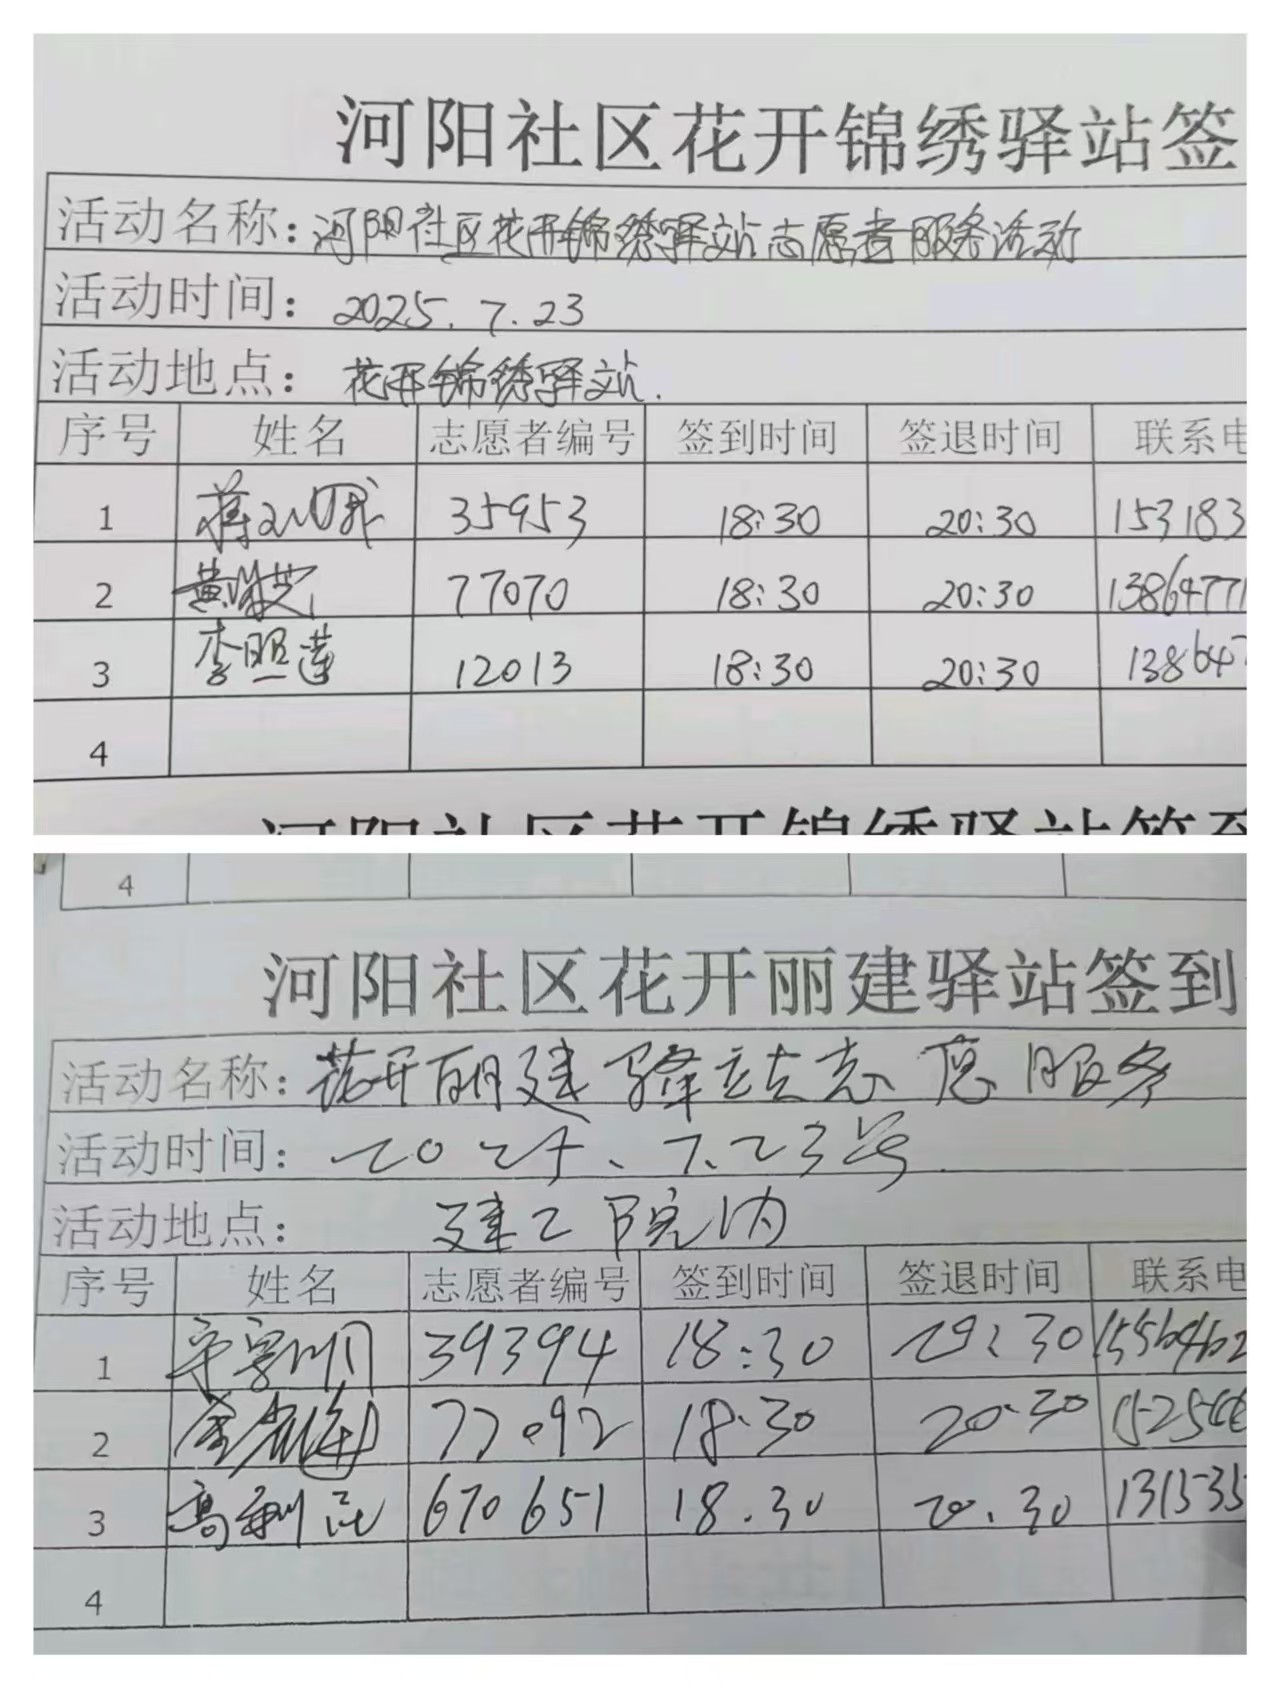 河阳社区花开锦绣驿站签
活动名称：河阳社区花开锦绣驿站志愿者服务活动
活动时间：2025.7.23
活动地点：花开锦绣驿站.
序号 姓名 志愿者编号 签到时间 签退时间 联系电
1 蒋 35953 18:30 20:30 153183
2 黄 77070 18:30 20:30 13864771
3 李照莲 12013 18:30 20:30 138647
4
河阳社区花开锦绣驿站签到
4
河阳社区花开丽建驿站签到
活动名称：花开丽建驿站志愿服务
活动时间：2025、7.23号
活动地点：建工院内
序号 姓名 志愿者编号 签到时间 签退时间 联系电
1 39394 18:30 :30
2 77092 18.30 20.30
3 高利 670651 18.30 20.30 131535
4